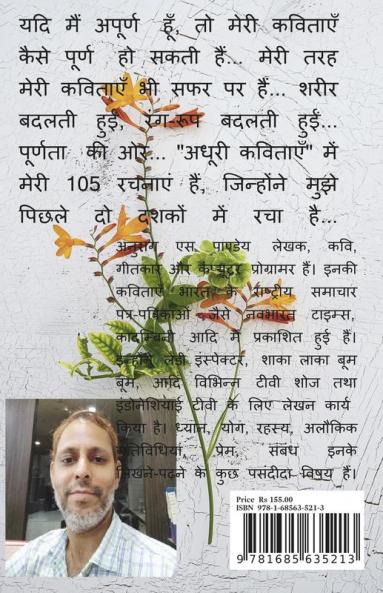 यदि मैं अपूर्ण हूँ, तो मेरी कविताएँ
कैसे पूर्ण हो सकती हैं... मेरी तरह
मेरी कविताएँ भी सफर पर हैं... शरीर
बदलती हुई, रंग-रूप बदलती हुई...
पूर्णता की ओर... "अधूरी कविताएँ" में
मेरी 105 रचनाएं हैं, जिन्होंने मुझे
पिछले दो दशकों में रचा है...
अनुराग एस पाण्डेय लेखक, कवि,
गीतकार और कंप्यूटर प्रोग्रामर हैं। इनकी
कविताएँ भारत के राष्ट्रीय समाचार
पत्र-पत्रिकाओं जैसे नवभारत टाइम्स,
कादम्बिनी आदि में प्रकाशित हुई हैं।
इन्होंने लेडी इंस्पेक्टर, शाका लाका बूम
बूम, आदि विभिन्न टीवी शोज तथा
इंडोनेशियाई टीवी के लिए लेखन कार्य
किया है। ध्यान, योग, रहस्य, अलौकिक
गतिविधियां, प्रेम, संबंध इनके
लिखने-पढ़ने के कुछ पसंदीदा विषय हैं।
Price Rs 155.00
ISBN 978-1-68563-521-3
9 781685 635213